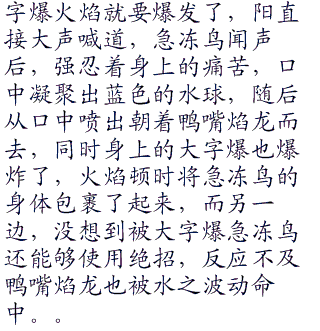 字爆火焰就要爆发了，阳直
接大声喊道，急冻鸟闻声
后，强忍着身上的痛苦，口
中凝聚出蓝色的水球，随后
从口中喷出朝着鸭嘴焰龙而
去，同时身上的大字爆也爆
炸了，火焰顿时将急冻鸟的
身体包裹了起来，而另一
边，没想到被大字爆急冻鸟
还能够使用绝招，反应不及
鸭嘴焰龙也被水之波动命
中。。